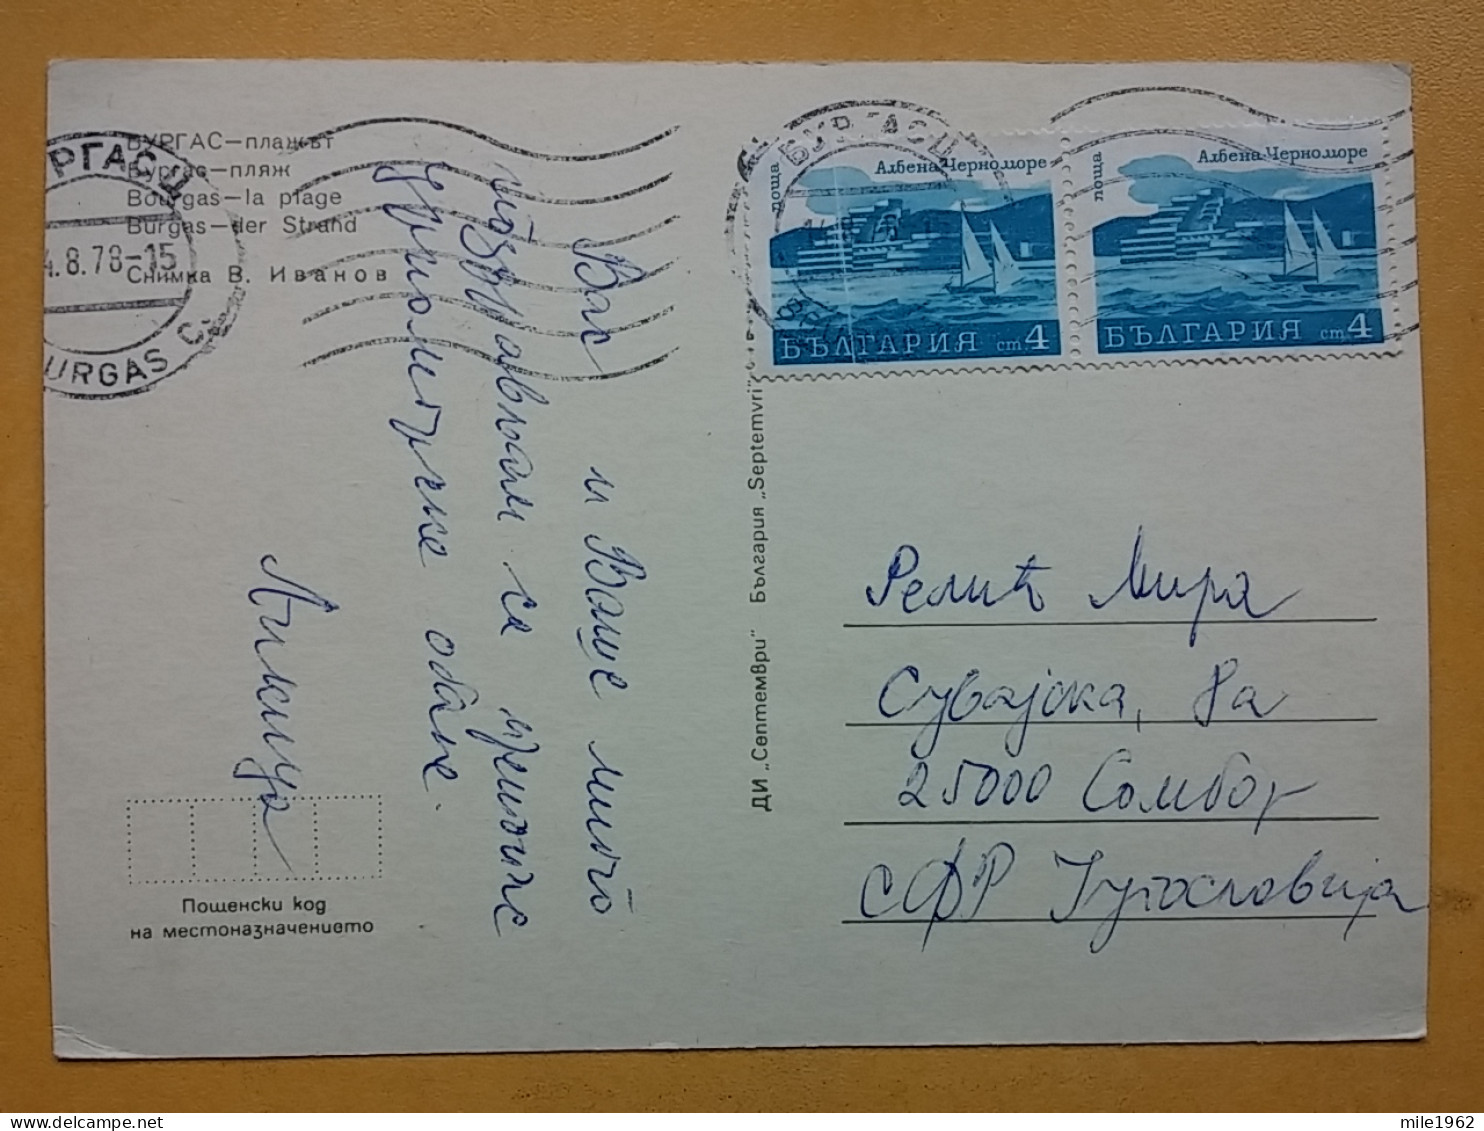 БУРГАС—плажът
Бургас—пляж
Bourgas—la plage
Burgas—der Strand
Снимка В. Иванов
4.8.78-15
URGAS C.
Вас и Ваше
поздрављам са
црноморске обале.
Пощенски код
на местоназначението
ДИ „Септември" България „Septemvri"
БУРГАС Ц
поща
Албена-Черноморе
БЪЛГАРИЯ ст 4
поща
Албена-Черноморе
БЪЛГАРИЯ ст 4
Релић Мира
Сувајска, 8а
25000 Сомбор
СФР Југославија
mile1962